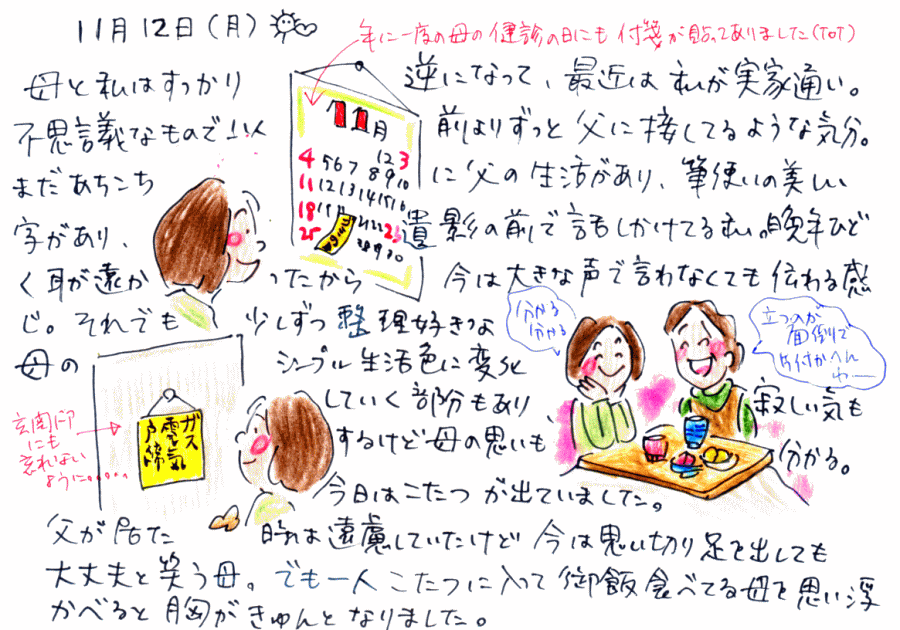 11月12日(月)
年に一度の母の健診の日にも付箋が貼ってありました(ToT)
母と私はすっかり
逆になって、最近は私が実家通い。
不思議なもので以
前よりずっと父に接してるような気分。
まだあちこち
に父の生活があり、筆使いの美しい
字があり、
遺影の前で話しかけてる私。晩年ひど
く耳が遠か
ったから
今は大きな声で言わなくても伝わる感
じ。それでも
少しずつ整理好きな
母の
シンプル生活色に変化
していく部分もあり
寂しい気も
するけど母の思いも
分かる。
今日はこたつが出ていました。
父が居た
時は遠慮していたけど今は思い切り足を出しても
大丈夫と笑う母。でも一人こたつに入って御飯食べてる母を思い浮
かべると胸がきゅんとなりました。
11月
12 3
4 5 6 7 8 9 10
11 12 13 14 15 16
18
25
28 29 30
分かる
分かる
立つのが
面倒で
片付かへん
わー
玄関印
にも
忘れない
ように・・・・・
ガス
電気
戸締